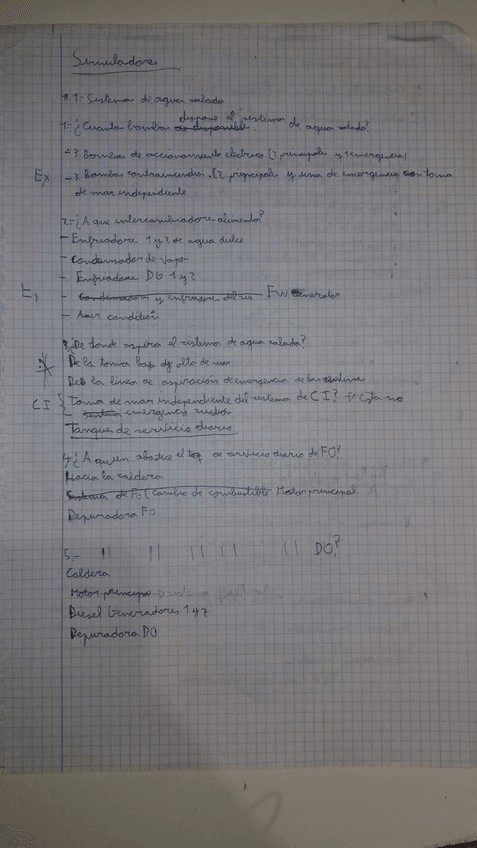 Simuladores
# 1- Sistema de agua salada
1- ¿Cuanta bombas dispone el sistema de agua salada?
- 3 bombas de accionamiento electrico (2 principales y 1 emergencia)
Ex - 3 bombas contraincendios (2 principales y una de emergencia con toma
de mar independiente
2- ¿A que intercambiadores alimenta?
- Enfriadore 1 y 2 de agua dulce
- Condensador de vapor
- Enfriadore DG 1 y 2
- Condensador y enfriadores del FW Generator
- Air condition
3¿De donde aspira el sistema de agua salada?
De la toma baja y alta de mar
De la linea de aspiración de emergencia de las
CI { Toma de mar independiente del sistema de CI? esta no
emergency suction
Tanques de servicio diario
4¿A quien abastece el tq de servicio diario de FO?
Hacia la caldera
Sistema de (Cambio de combustible Motor principal
Depuradora FO
5.- 11 11 11 11 11 DO?
Caldera
Motor principa
Diesel Generadores 1 y 2
Depuradora DO